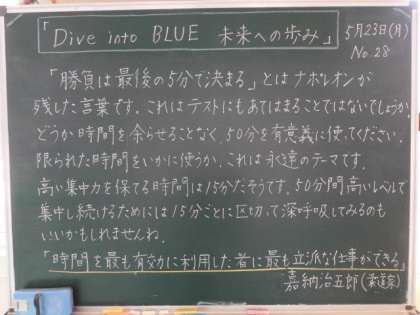 「Dive into BLUE 未来への歩み」
5月23日(月)
No.28
「勝負は最後の5分で決まる」とはナポレオンが
残した言葉です。これはテストにもあてはまることではないでしょうか
どうか時間を余らせることなく、50分を有意義に使ってください。
限られた時間をいかに使うか、これは永遠のテーマです。
高い集中力を保てる時間は15分だそうです。50分間高いレベルで
集中し続けるためには15分ごとに区切って深呼吸してみるのも
いいかもしれませんね。
「時間を最も有効に利用した者に最も立派な仕事ができる」
嘉納治五郎(柔道家)